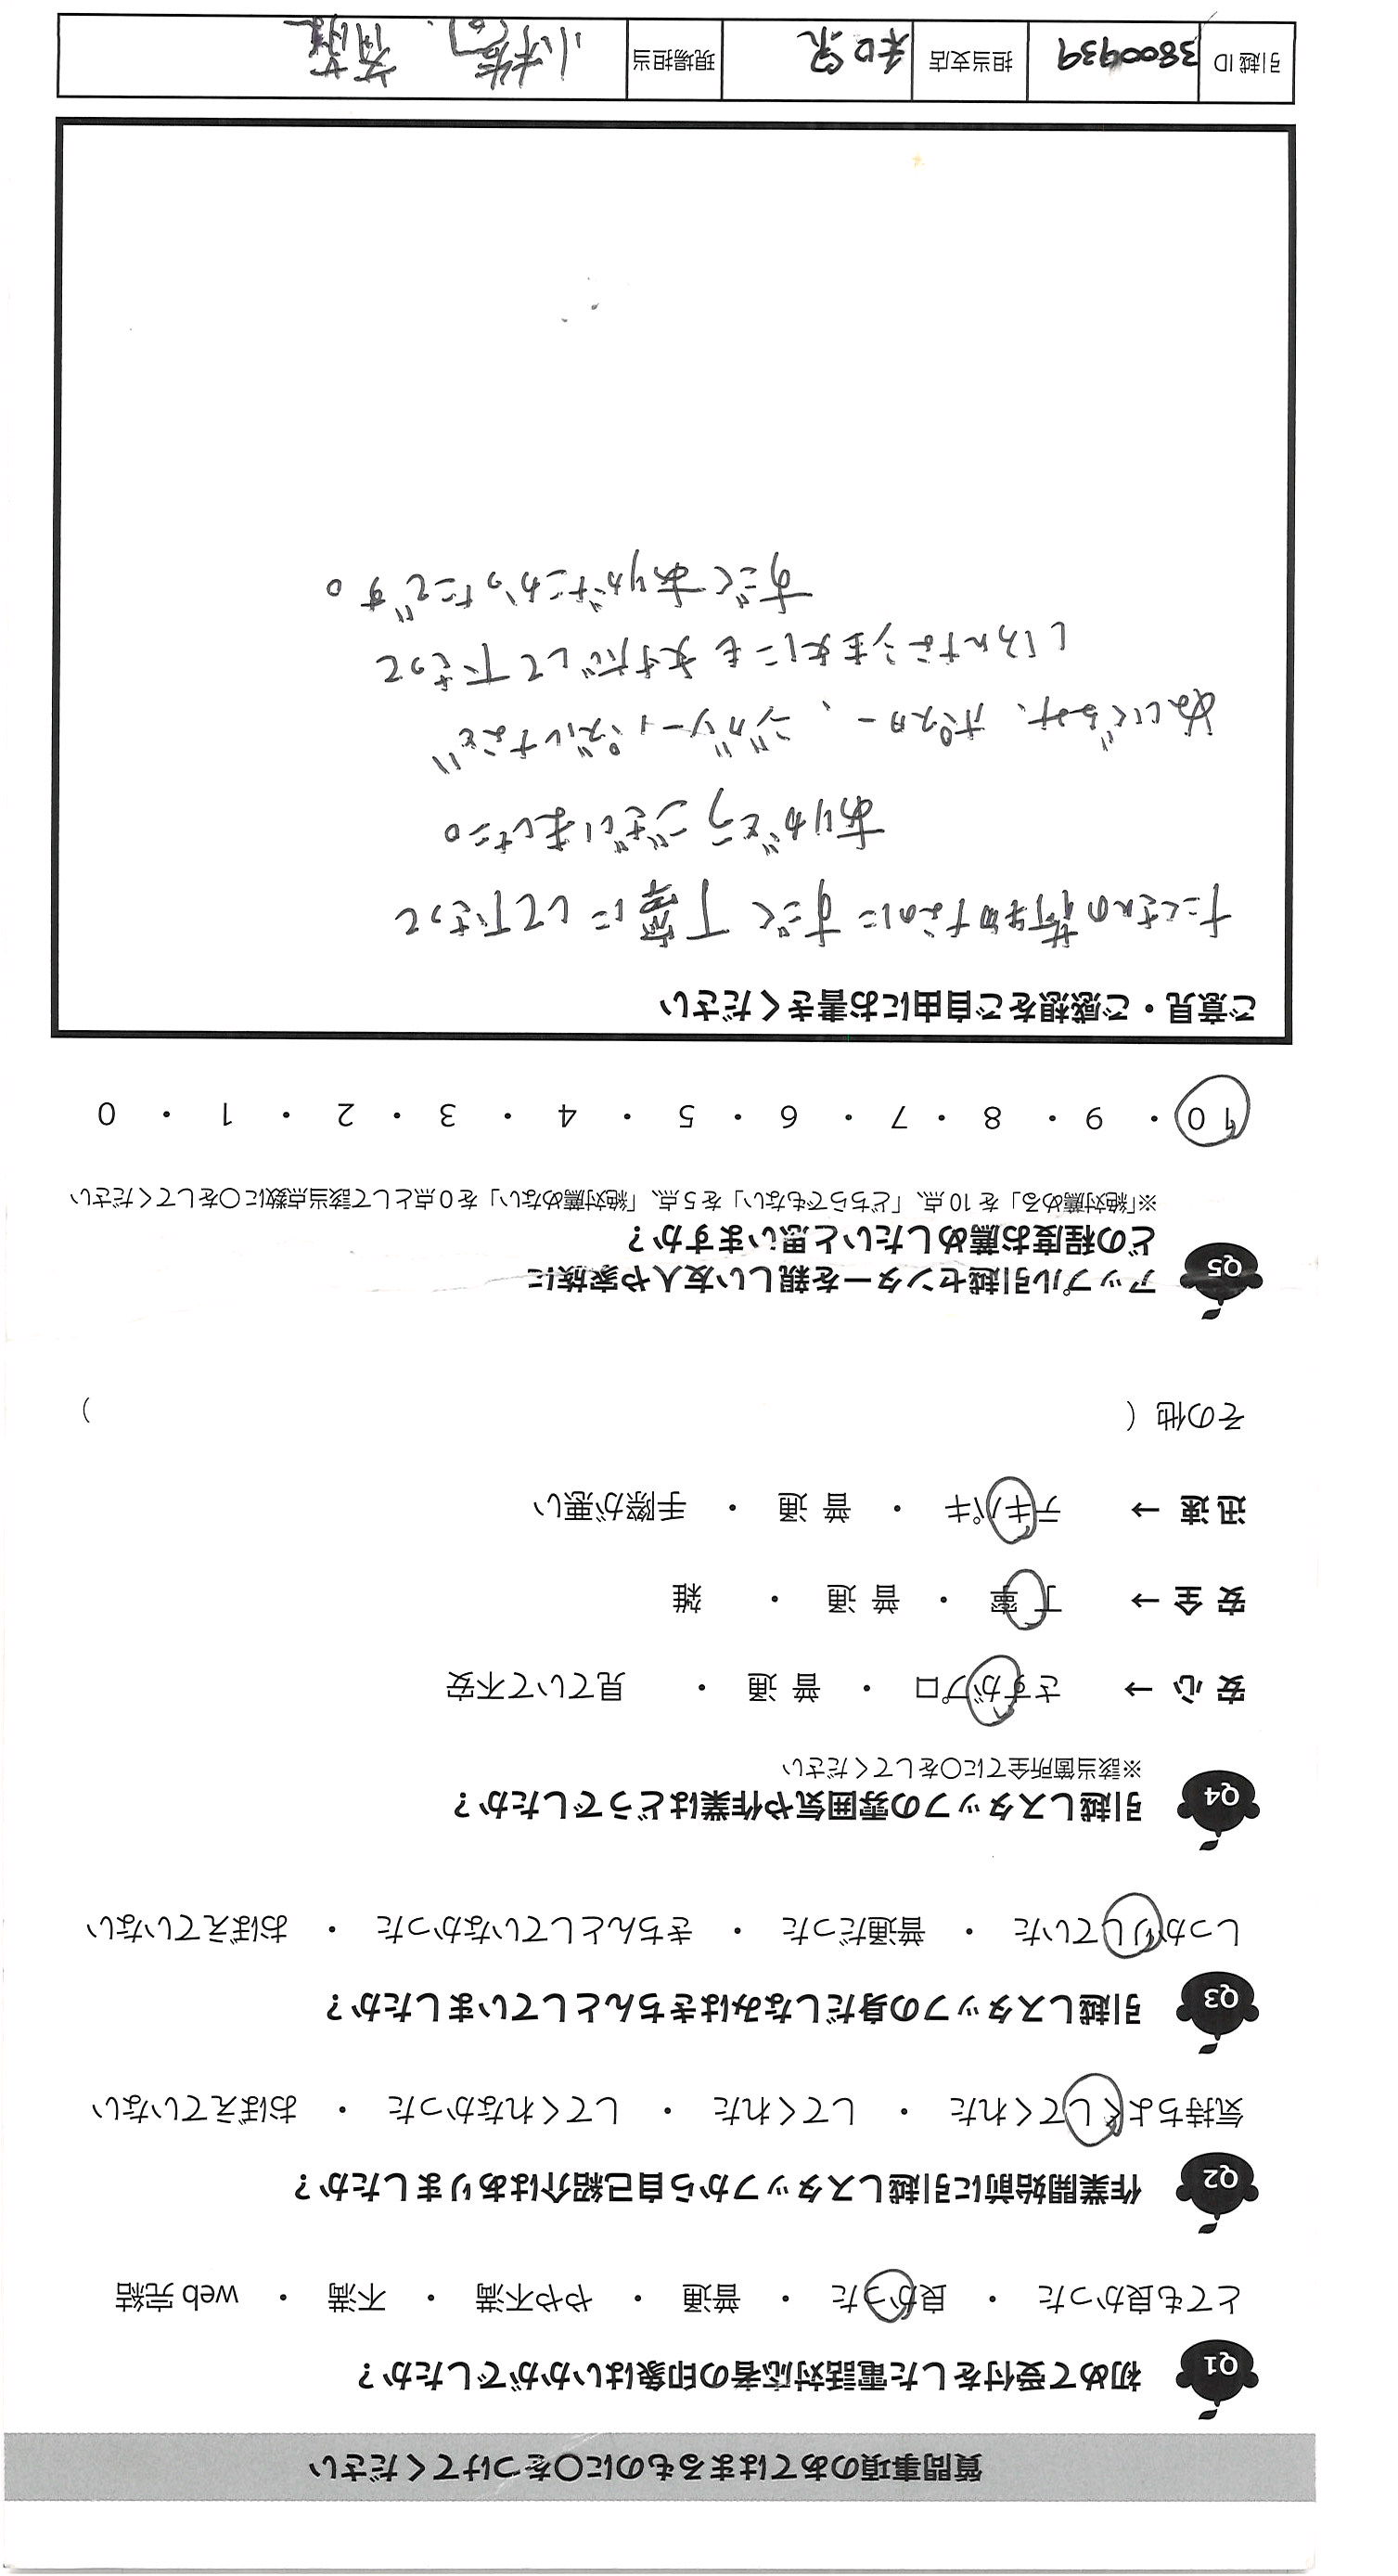 質問事項のあてはまるものに〇をつけてください
Q1 初めて受付をした電話対応者の印象はいかがでしたか？
とても良かった ・ 良かった ・ 普通 ・ やや不満 ・ 不満 ・ web 完結
Q2 作業開始前に引越しスタッフから自己紹介はありましたか？
気持ちよくしてくれた ・ してくれた ・ してくれなかった ・ おぼえていない
Q3 引越しスタッフの身だしなみはきちんとしていましたか？
しっかりしていた ・ 普通だった ・ きちんとしていなかった ・ おぼえていない
Q4 引越しスタッフの雰囲気や作業はどうでしたか？
※該当箇所全てに〇をしてください
安 心 → さすがプロ ・ 普 通 ・ 見ていて不安
安 全 → 丁 寧 ・ 普 通 ・ 雑
迅 速 → テキパキ ・ 普 通 ・ 手際が悪い
その他（ ）
Q5 アップル引越センターを親しい友人や家族に
どの程度お薦めしたいと思いますか？
※「絶対薦める」を 10 点、「どちらでもない」を 5 点、「絶対薦めない」を 0 点として該当点数に〇をしてください
10 ・ 9 ・ 8 ・ 7 ・ 6 ・ 5 ・ 4 ・ 3 ・ 2 ・ 1 ・ 0
ご意見・ご感想をご自由にお書きください
たくさんの荷物なのにすごく丁寧にして下さって
ありがとうございました。
ぬいぐるみ、ポスター、ジグソーパズルなど
いろんな注文にも対応して下さって
すごくありがたかったです。
引越 ID 3800939 担当支店 和泉 現場担当 小椿